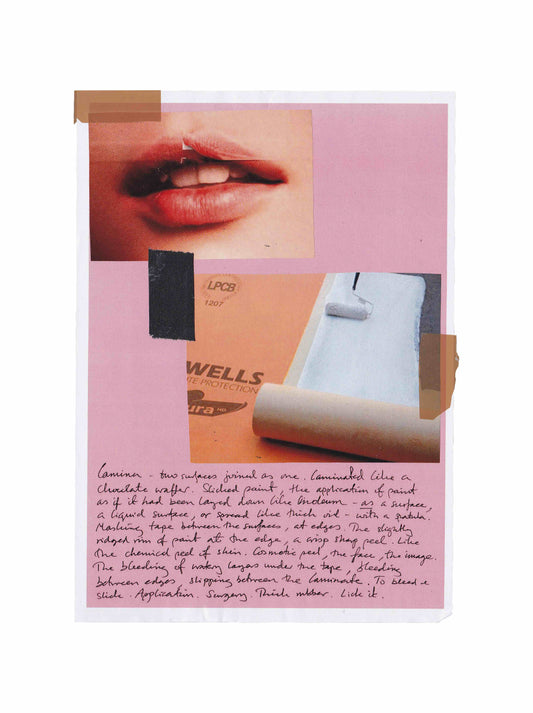 LPCB
1207
WELLS
TE PROTECTION
ura HD
Lamina - two surfaces joined as one. Laminated like a
chocolate waffer. Slicked paint, the application of paint
as if it had been layed down like linoleum - as a surface,
a liquid surface, or spread like thick oil - with a spatula.
Masking tape between the surfaces, at edges. The slightly
ridged rim of paint at the edge, a crisp sharp peel. Like
the chemical peel of skin. Cosmetic peel, the face, the image.
The bleeding of watery layers under the tape, bleeding
between edges, slipping between the laminate. To bleed +
slide. Application. Surgery. Thick rubber. Lick it.